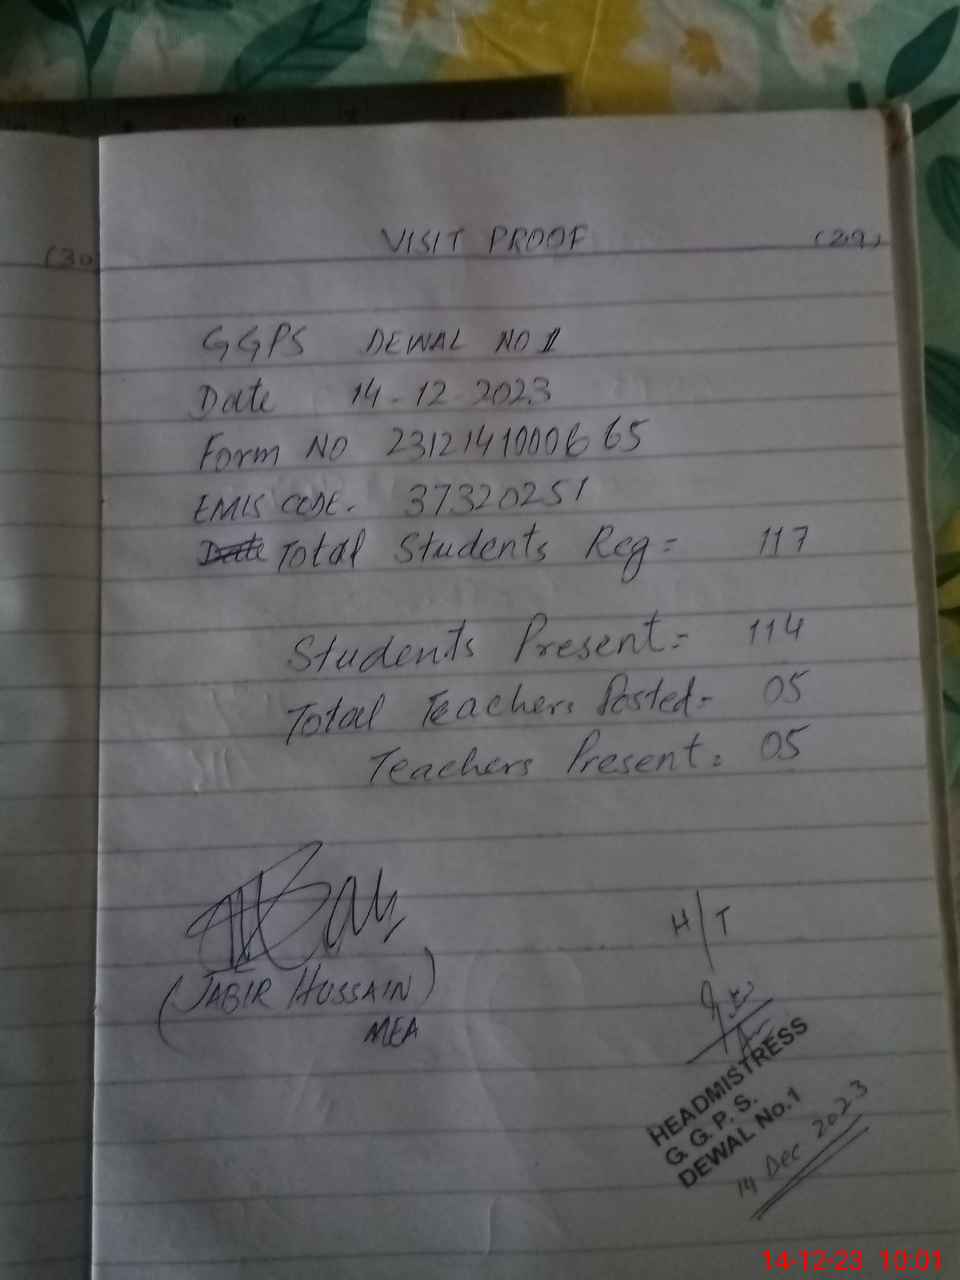 (30
VISIT PROOF (29)
GGPS DEWAL NO 1
Date 14-12-2023
Form NO 231214100065
EMIS CODE. 37320251
Date Total Students Reg= 117
Students Present= 114
Total Teachers Posted= 05
Teachers Present= 05
H/T
(JABIR HUSSAIN)
MEA
HEADMISTRESS
G.G.P.S.
DEWAL No.1
14 Dec 2023
14-12-23 10:01